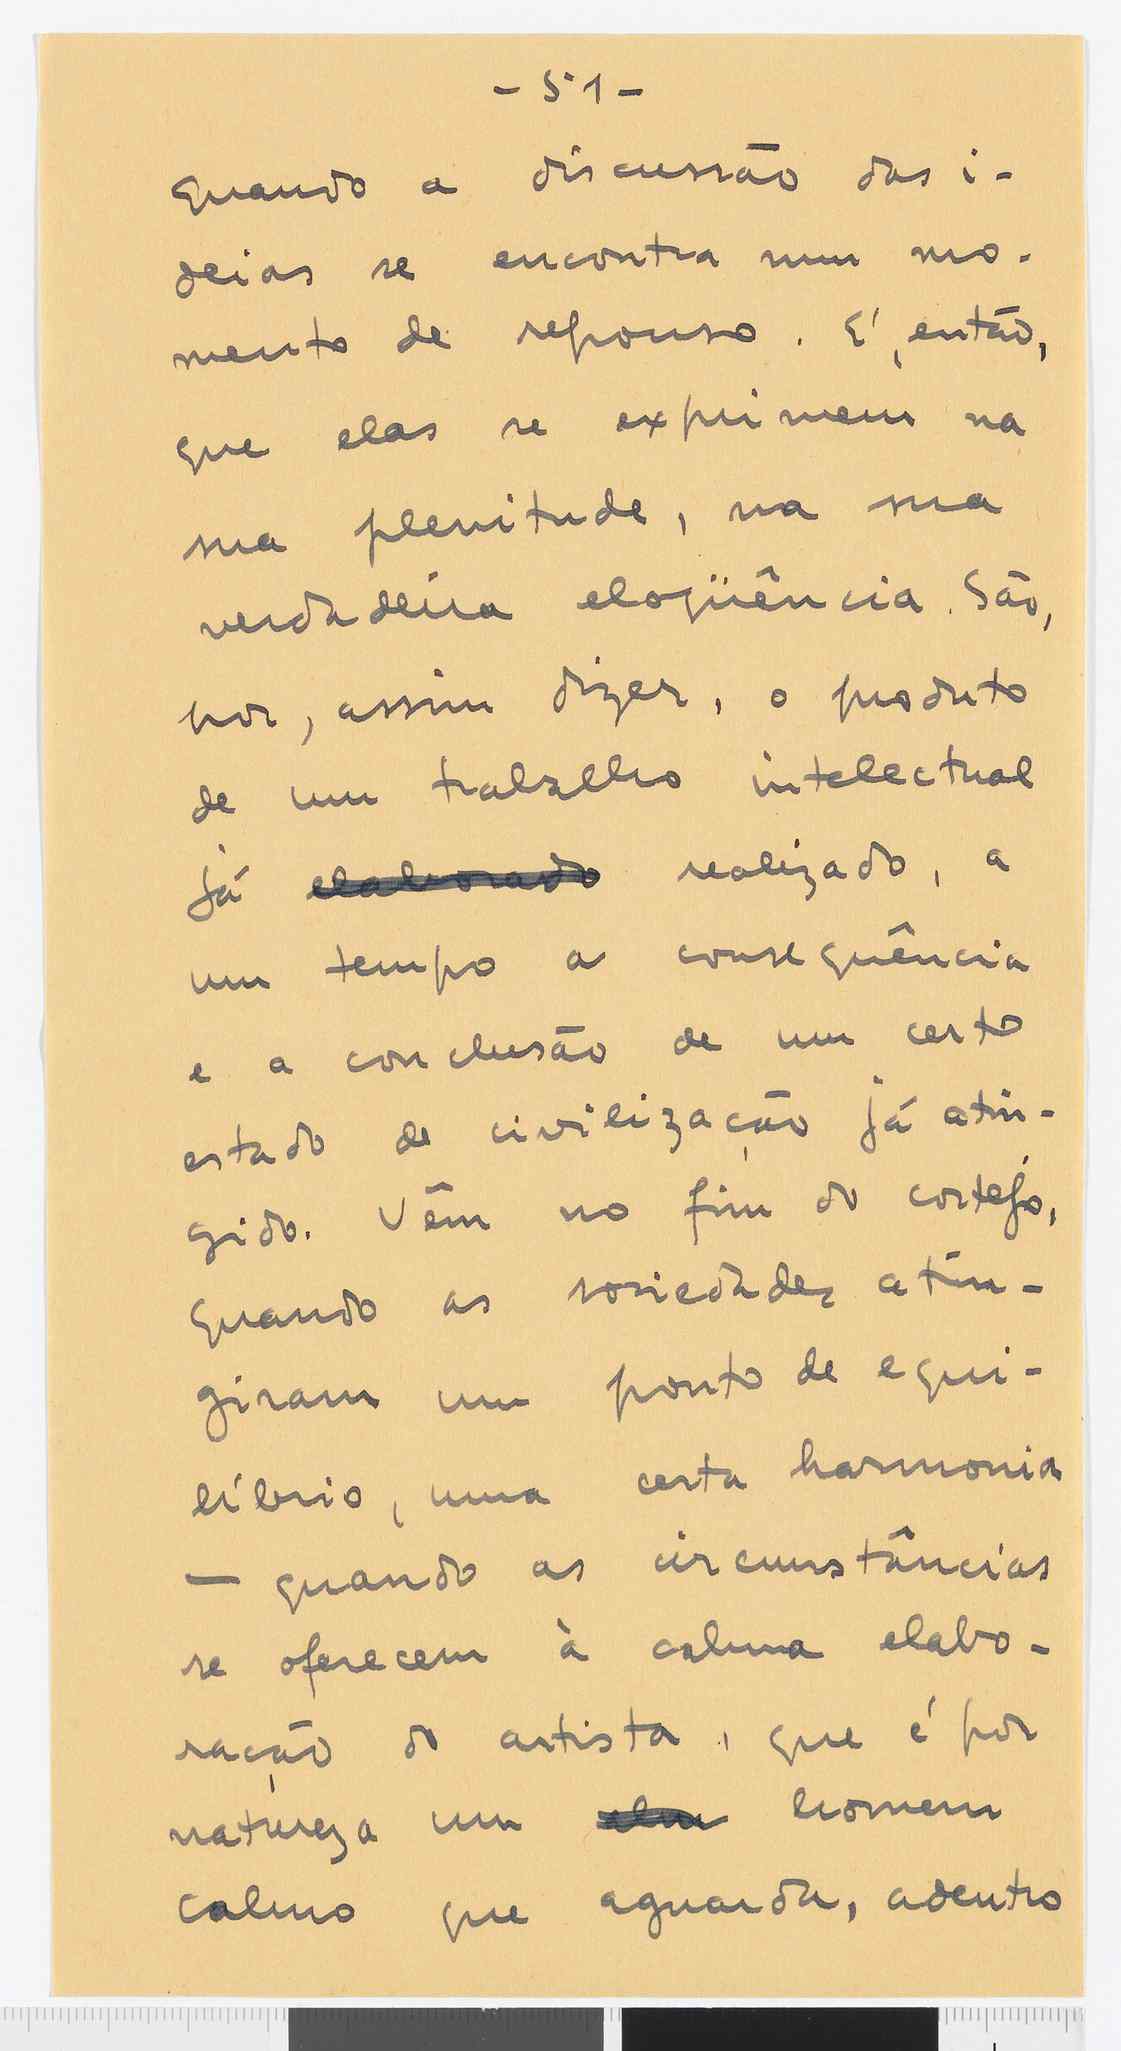 - 51 -
quando a discussão das i-
deias se encontra num mo-
mento de repouso. É, então,
que elas se exprimem na
sua plenitude, na sua
verdadeira eloqüência. São,
por, assim dizer, o produto
de um trabalho intelectual
já elaborado realizado, a
um tempo a consequência
e a conclusão de um certo
estado de civilização já atin-
gido. Vêm no fim do cortejo,
quando as sociedades atin-
giram um ponto de equi-
líbrio, uma certa harmonia
— quando as circunstâncias
se oferecem à calma elabo-
ração do artista, que é por
natureza um homem
calmo que aguarda, adentro